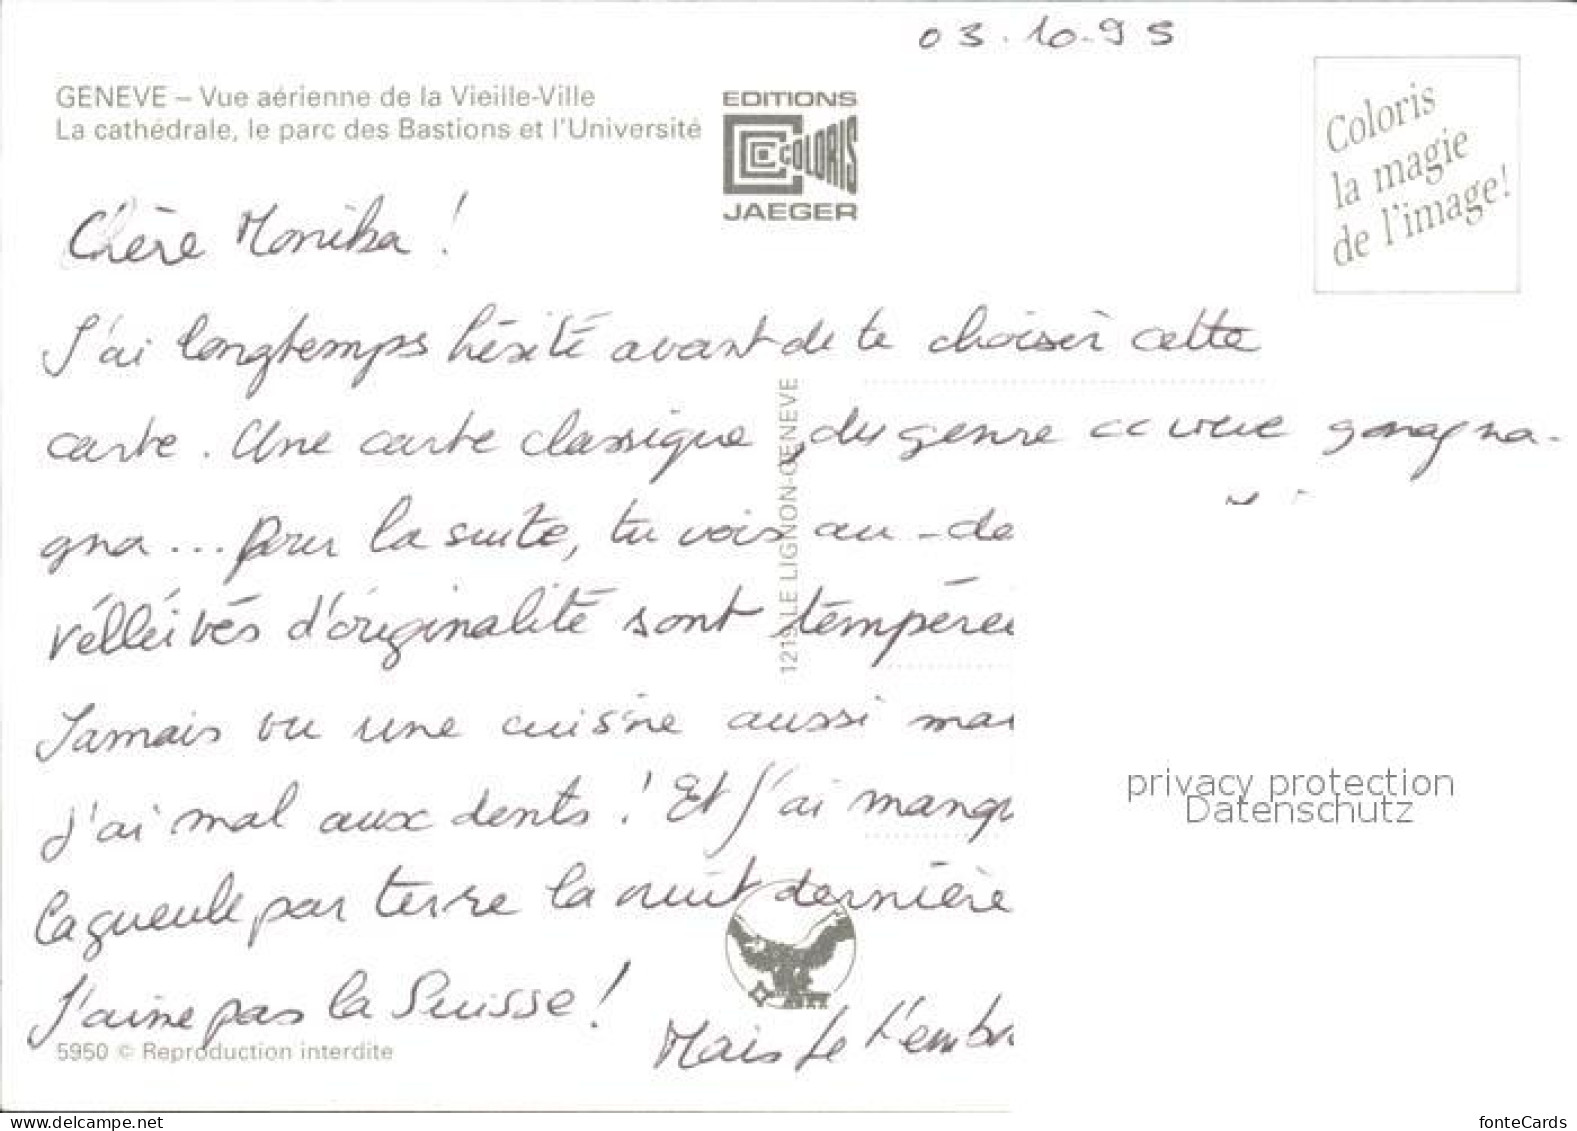 03.10.95
GENEVE – Vue aérienne de la Vieille-Ville
La cathédrale, le parc des Bastions et l'Université
EDITIONS
COLORIS
JAEGER
Coloris
la magie
de l'image!
Chère Monika !
J'ai longtemps hésité avant de te choisir cette
carte. Une carte classique, du genre gnagna-
gna... Pour la suite, tu vois au-de
vélléités d'originalité sont témpérée
Jamais vu une cuisine aussi mau
J'ai mal aux dents ! Et J'ai manqu
la gueule par terre la nuit dernière
J'aime pas la Suisse !
Mais Je t'embr
1219 LE LIGNON-GENEVE
5950 © Reproduction interdite
privacy protection
Datenschutz
www.delcampe.net
fonteCards